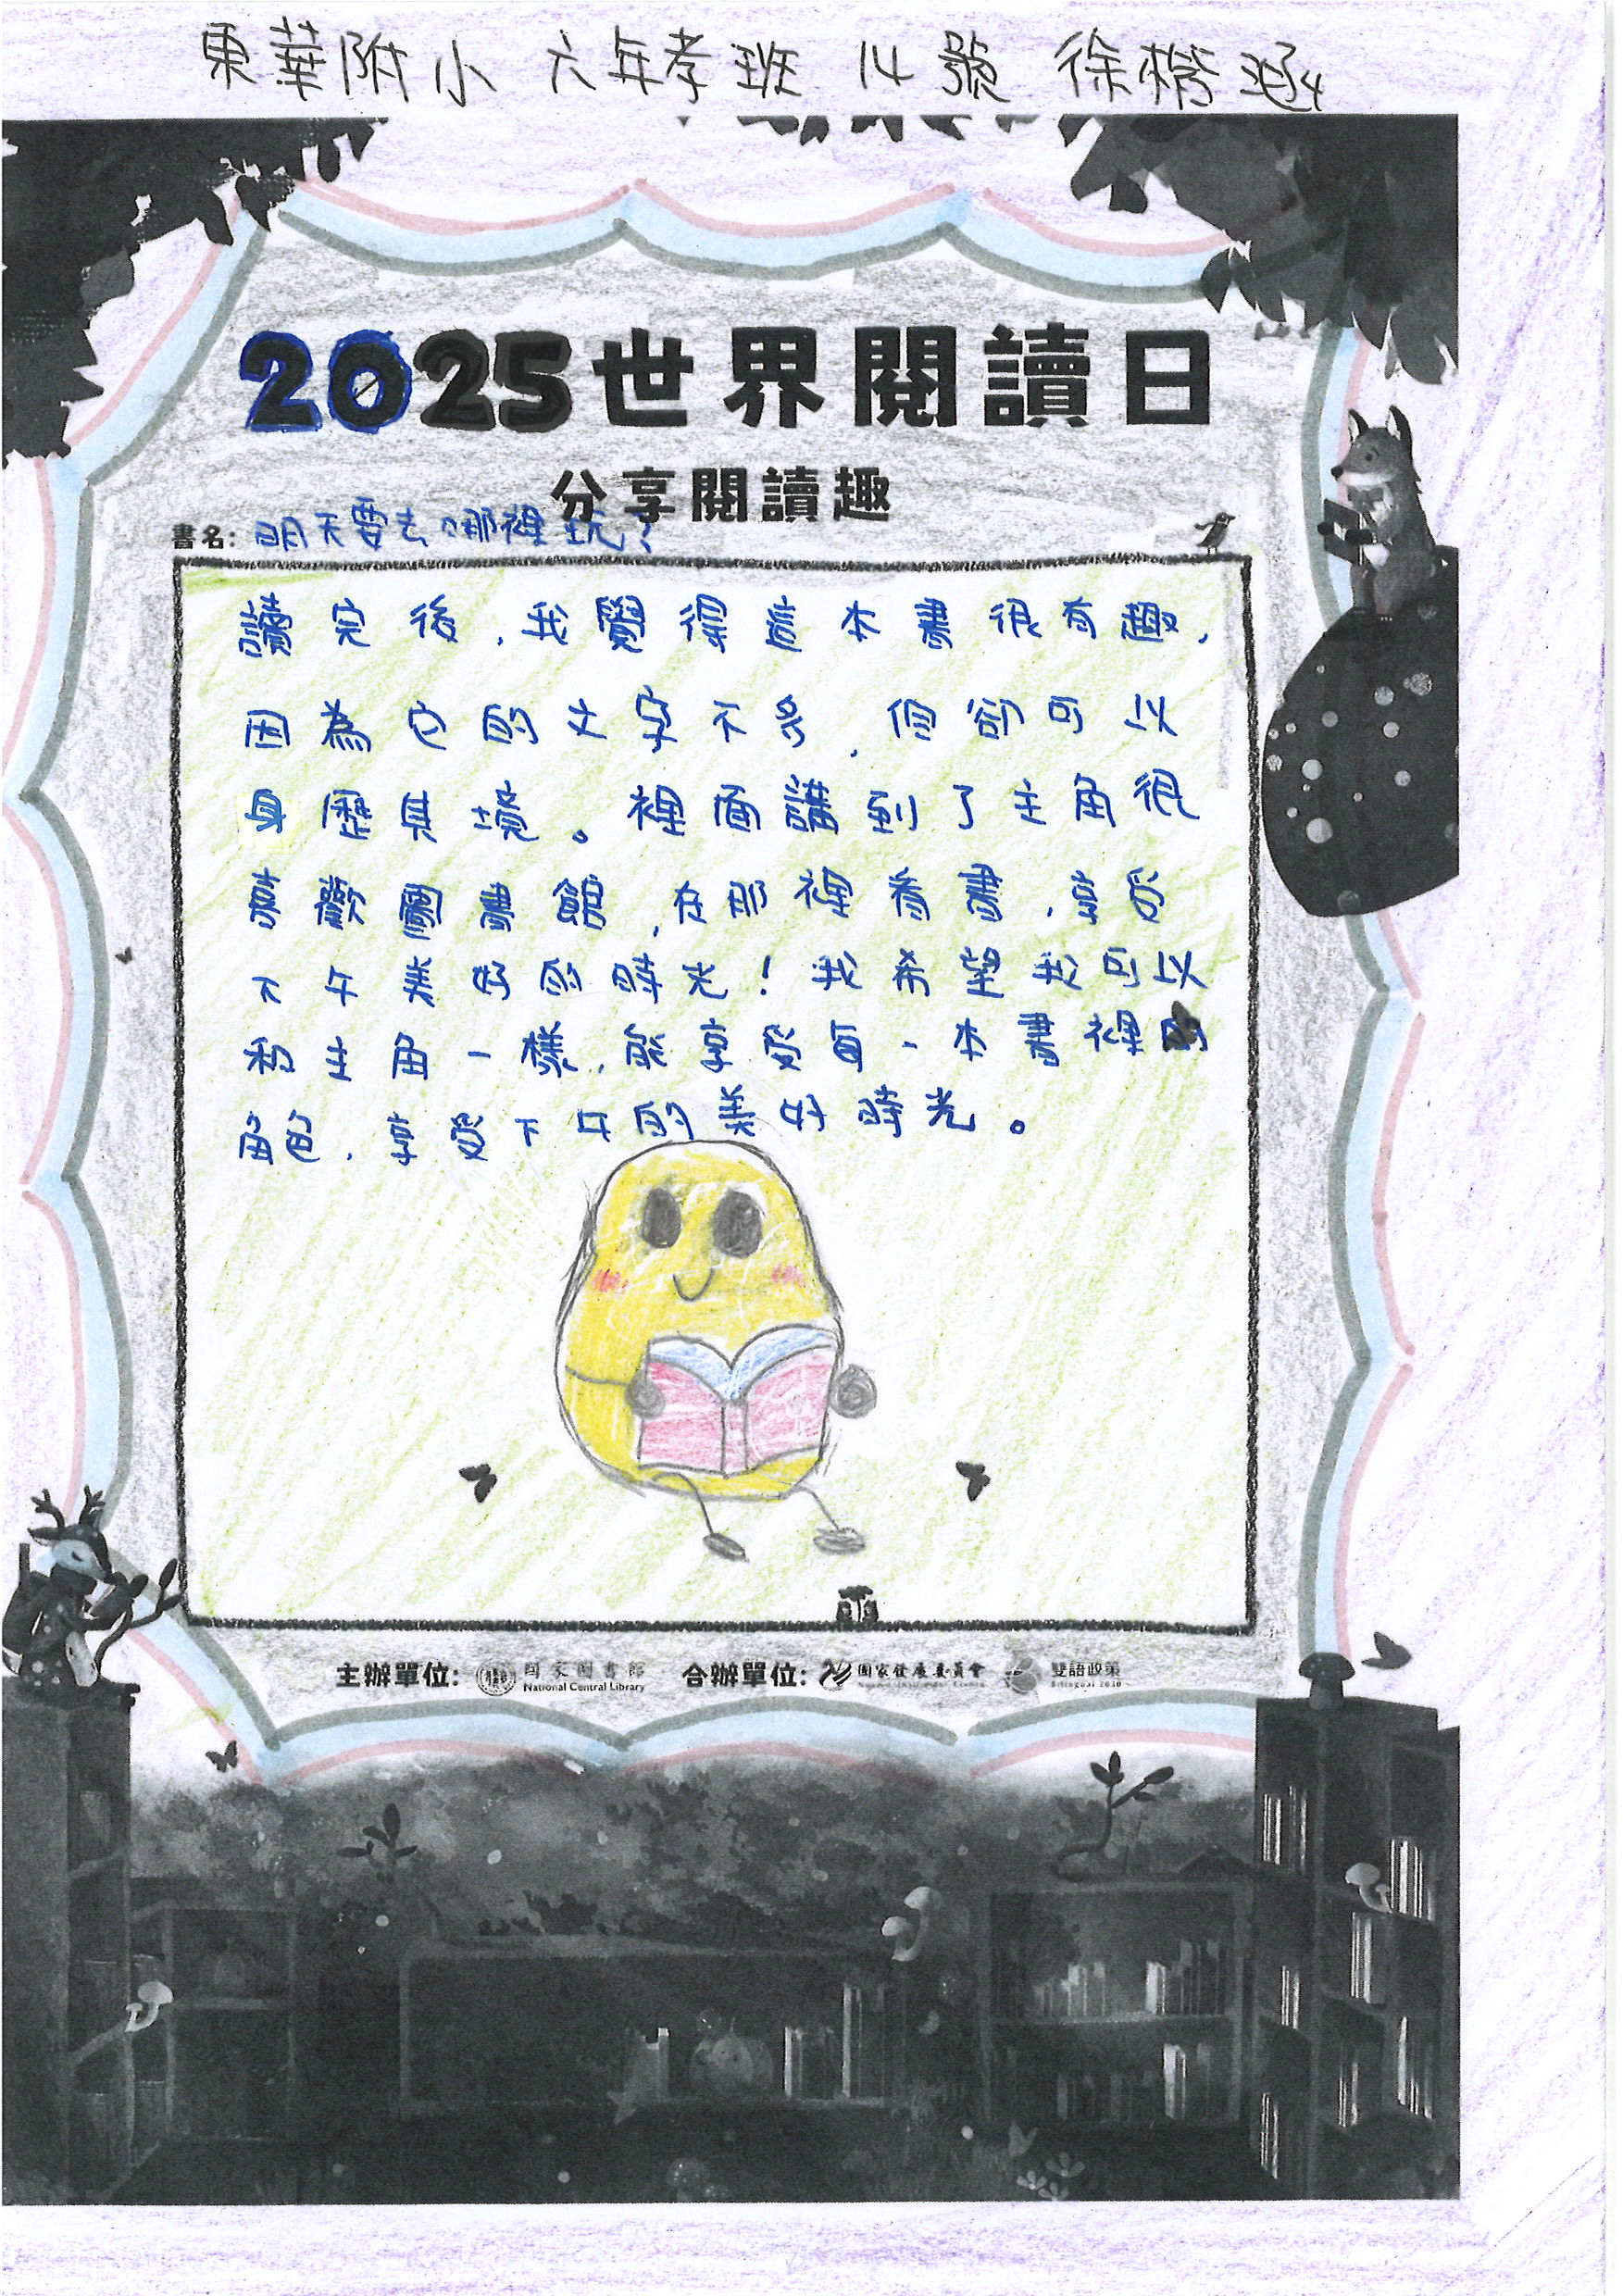 東華附小 六年孝班 14號 徐榜涵4
2025世界閱讀日
分享閱讀趣
書名: 明天要去哪裡玩？
讀完後，我覺得這本書很有趣，
因為它的文字不多，但卻可以
身歷其境。裡面講到了主角很
喜歡圖書館，在那裡看書，享受
下午美好的時光！我希望我可以
和主角一樣，能享受每一本書裡的
角色，享受下午的美好時光。
主辦單位: 國家圖書館 National Central Library 合辦單位: 國家發展委員會 雙語政策 Bilingual 2030